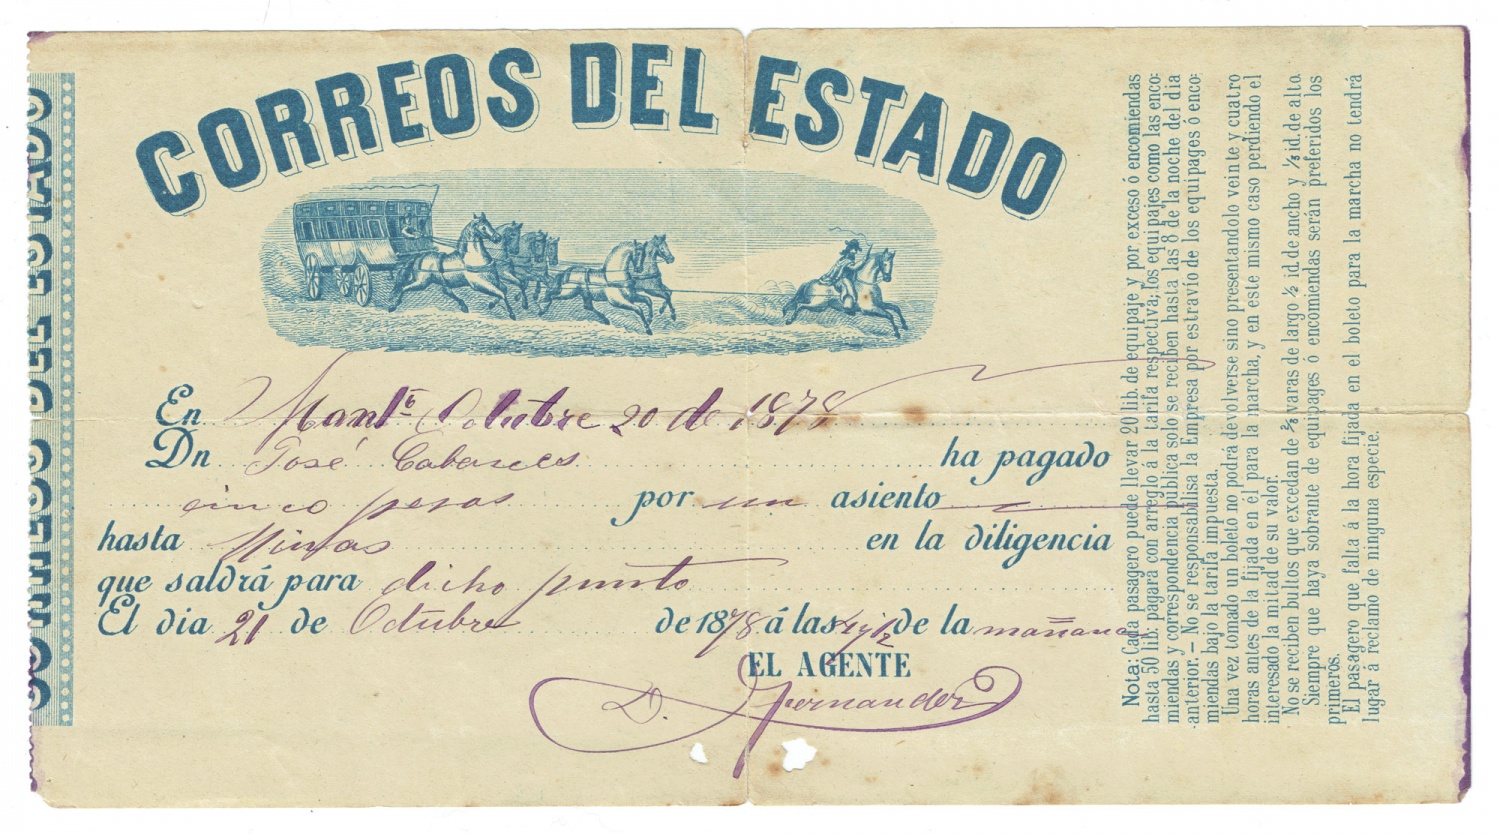 CORREOS DEL ESTADO
CORREOS DEL ESTADO
En Octubre 20 de 1878
Dn José ha pagado
cinco pesos por un asiento
hasta Minas en la diligencia
que saldrá para dicho punto
El dia 21 de Octubre de 1878 á las 4 y 1/2 de la mañana
EL AGENTE
D. Hernandez
Nota: Cada pasagero puede llevar 20 lib. de equipaje y por excesó ó encomiendas
hasta 50 lib. pagará con arreglo á la tarifa respectiva; los equipajes como las enco:
miendas y correspondencia pública solo se reciben hasta las 8 de la noche del dia
anterior. — No se responsabilisa la Empresa por estravío de los equipages ó enco:
miendas bajo la tarifa impuesta.
Una vez tomado un boleto no podrá devolverse sino presentandolo veinte y cuatro
horas antes de la fijada en el para la marcha, y en este mismo caso perdiendo el
interesado la mitad de su valor.
No se reciben bultos que excedan de varas de largo ½ id de ancho y ⅓ id. de alto.
Siempre que haya sobrante de equipages ó encomiendas serán preferidos los
primeros.
El pasagero que falta á la hora fijada en el boleto para la marcha no tendrá
lugar á reclamo de ninguna especie.